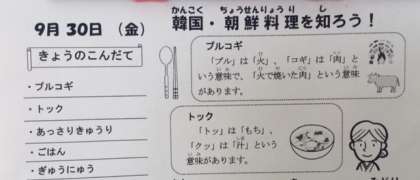 9月30日（金）
きょうのこんだて
・プルコギ
・トック
・あっさりきゅうり
・ごはん
・ぎゅうにゅう
かんこく ちょうせんりょうり し
韓国・朝鮮料理を知ろう！
プルコギ
「プル」は「火」、「コギ」は「肉」と
いう意味で、「火で焼いた肉」という意味
があります。
トック
「トッ」は「もち」、
「クッ」は「汁」という
意味があります。